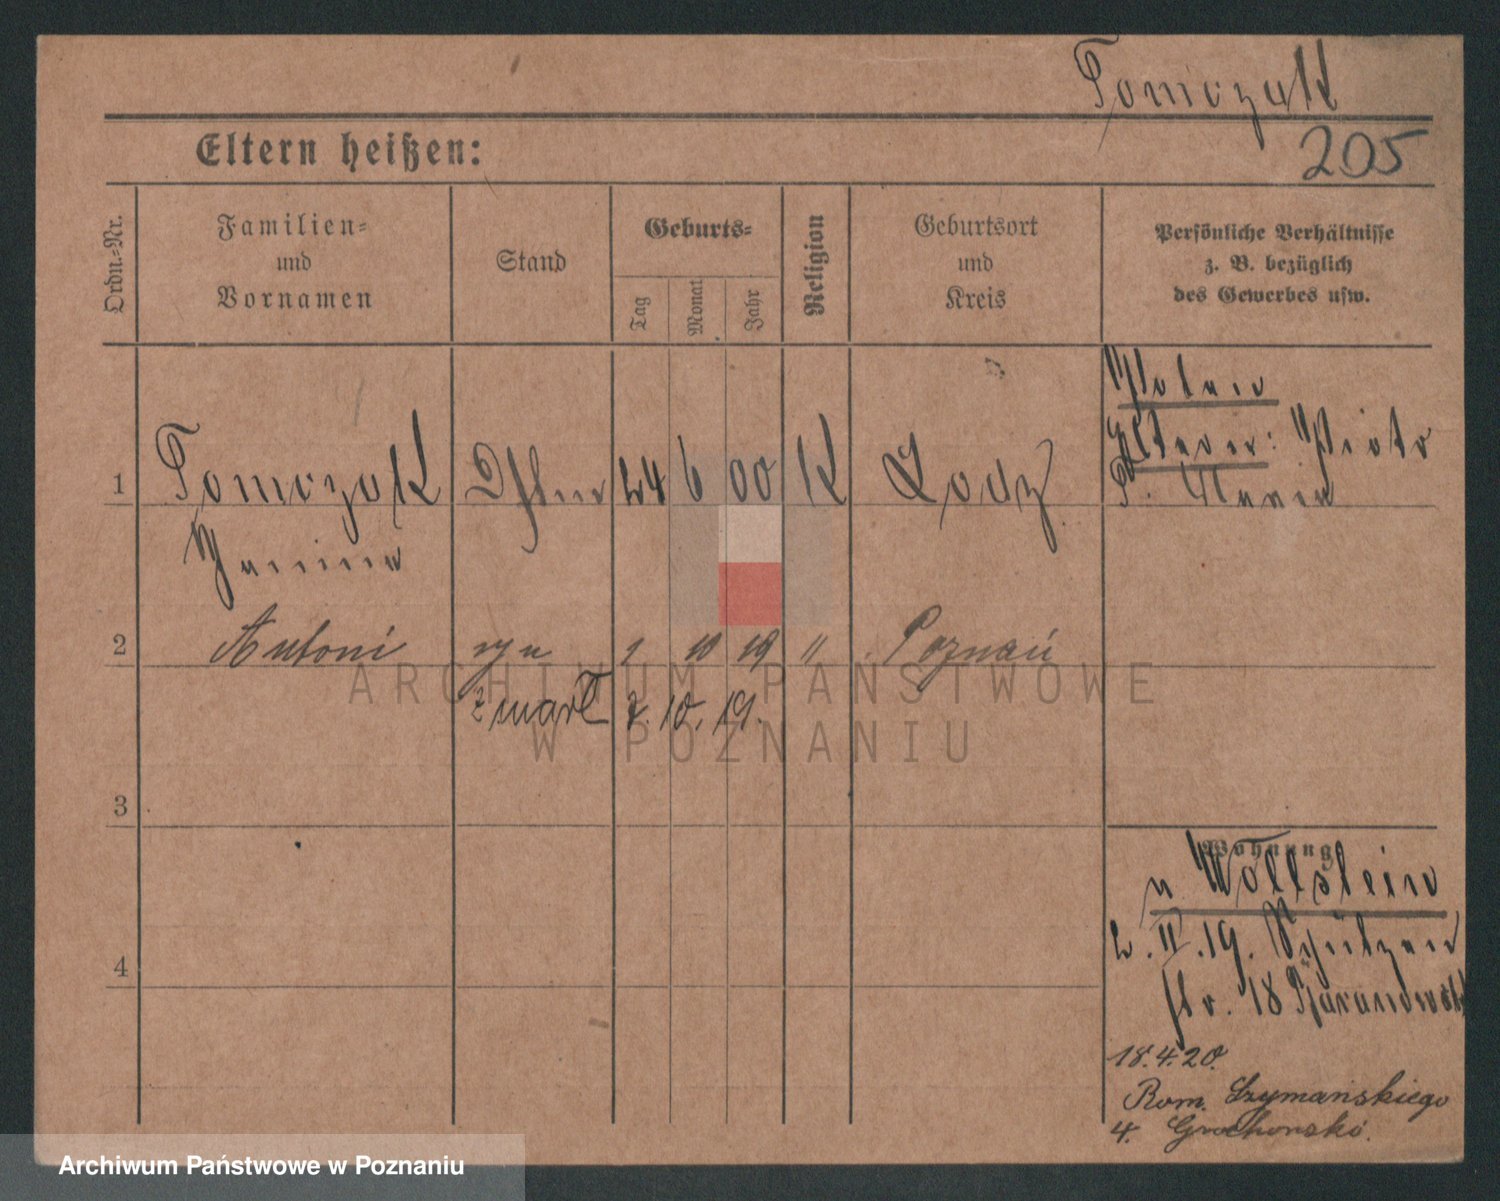 Tomczak
205
Eltern heißen:
Ordn.-Nr.
Familien-
und
Vornamen
Stand
Geburts-
Tag
Monat
Jahr
Religion
Geburtsort
und
Kreis
Persönliche Verhältnisse
z. B. bezüglich
des Gewerbes usw.
Polen
Eltern: Piotr
1 Tomczak 24 6 00 K Lodz
Janina
2 Antoni syn 1 10 19 " Poznań
zmarł 2. 10. 19.
ARCHIWUM PAŃSTWOWE
W POZNANIU
3
Wohnung
v. Wollstein
2. II. 19. Schützen
str. 18
4
18.4.20.
Rom. Szymańskiego
4.
Archiwum Państwowe w Poznaniu